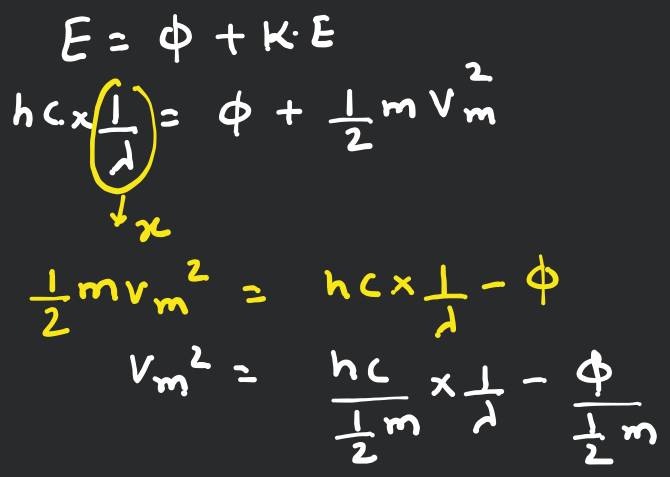 E = φ + K.E
hc × 1/λ = φ + 1/2 m Vm²
x
1/2 m vm² = hc × 1/λ - φ
Vm² = hc/(1/2 m) × 1/λ - φ/(1/2 m)